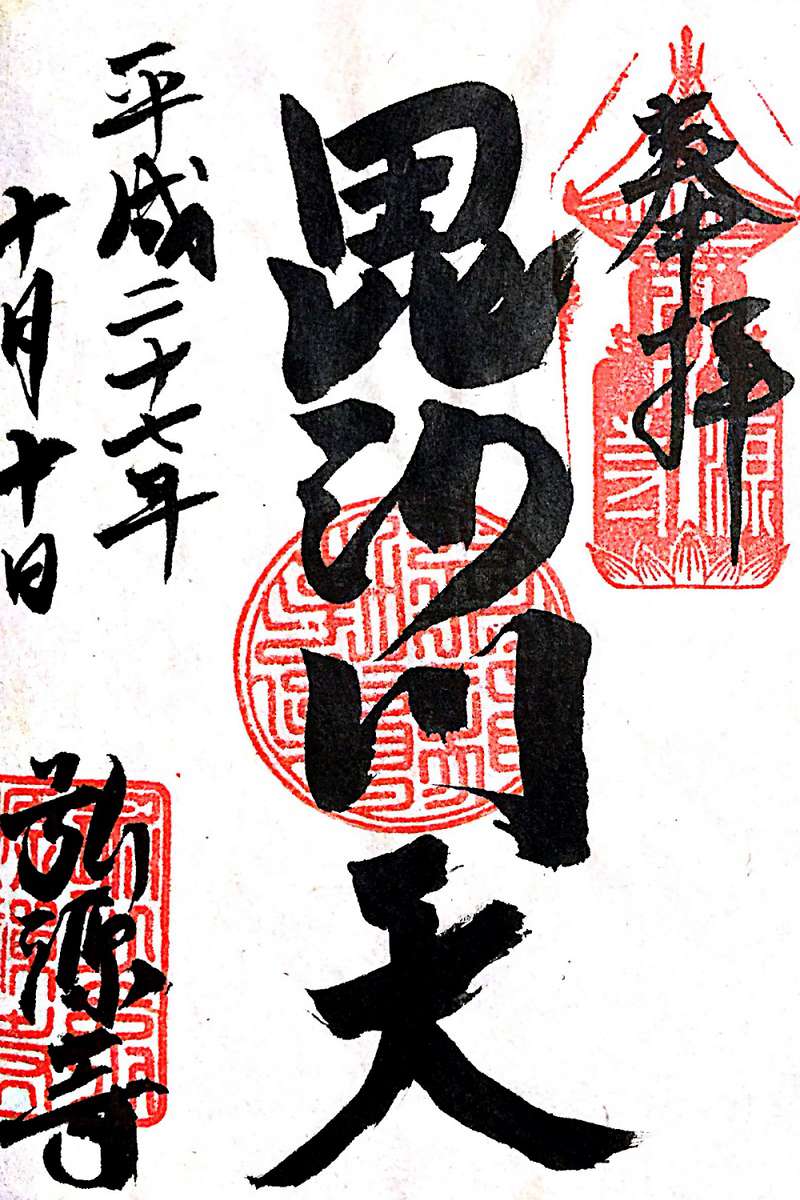 奉拝
毘沙門天
平成二十七年
十月十日
弘源寺